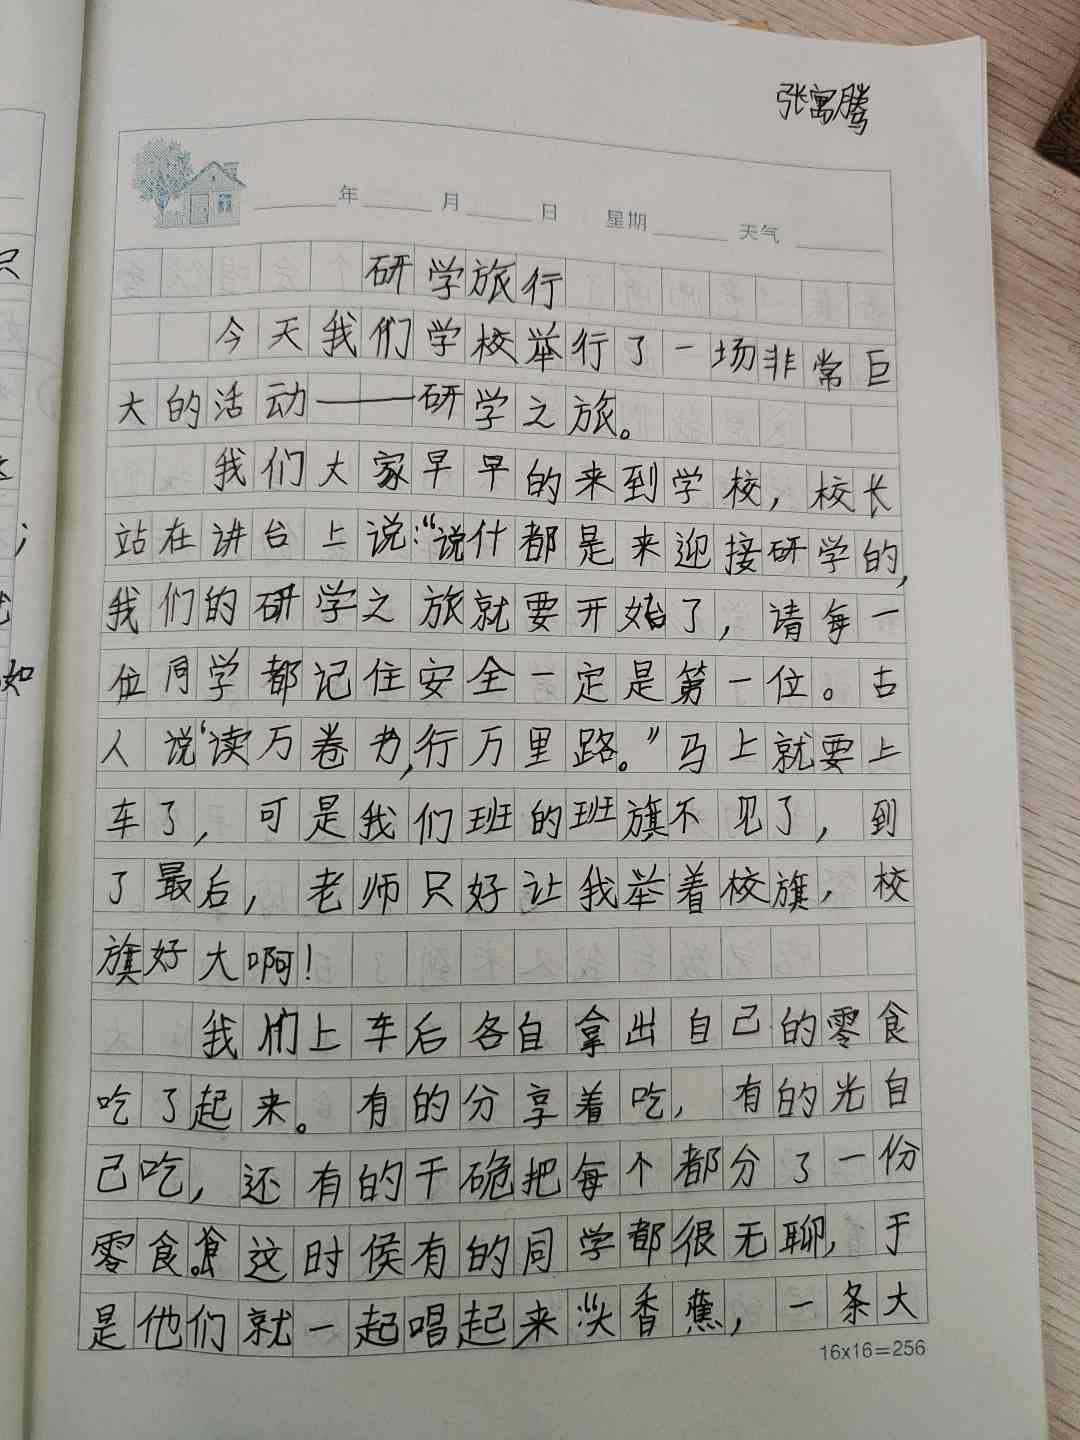 张寓腾
年 月 日 星期 天气
研学旅行
今天我们学校举行了一场非常巨
大的活动——研学之旅。
我们大家早早的来到学校，校长
站在讲台上说：“说什都是来迎接研学的，
我们的研学之旅就要开始了，请每一
位同学都记住安全一定是第一位。古
人说‘读万卷书，行万里路。”马上就要上
车了，可是我们班的班旗不见了，到
了最后，老师只好让我举着校旗，校
旗好大啊！
我们上车后各自拿出自己的零食
吃了起来。有的分享着吃，有的光自
己吃，还有的干硊把每个都分了一份
零食。食这时侯有的同学都很无聊，于
是他们就一起唱起来“大香蕉，一条大
16x16=256
只
；
如